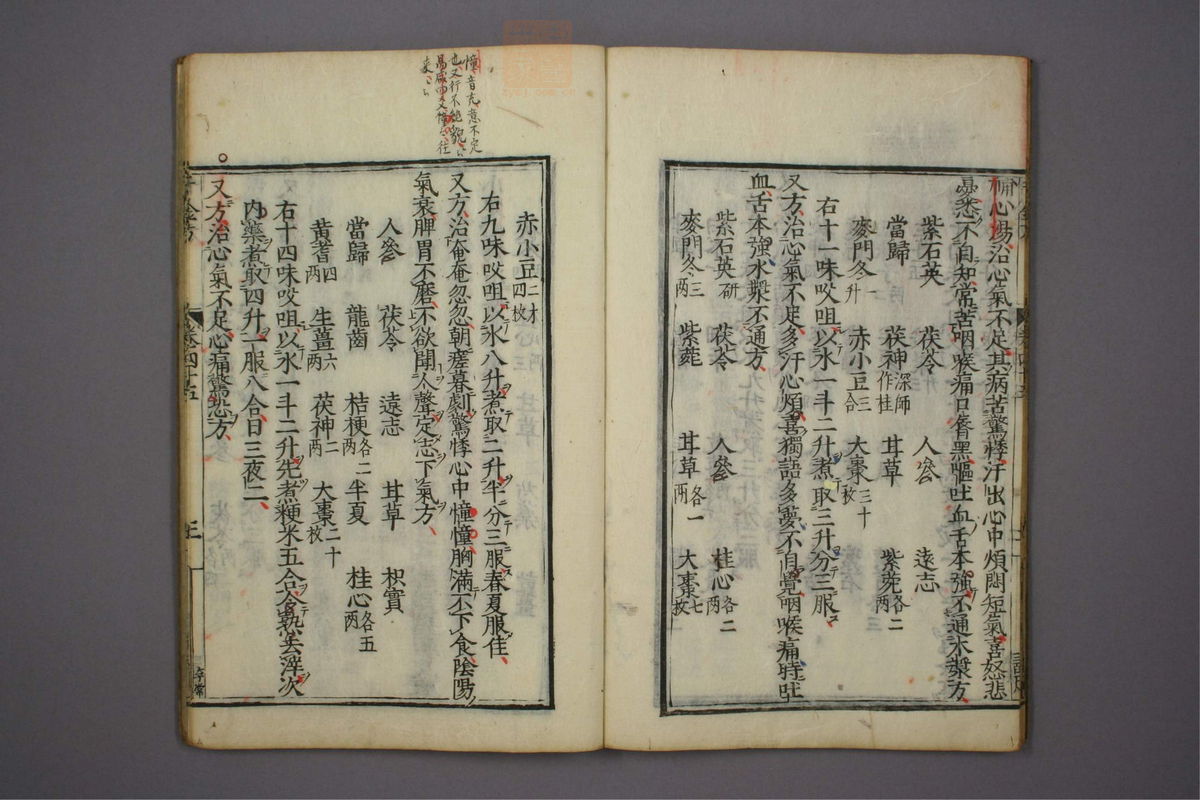 補心湯治心氣不足其病苦驚悸汗出心中煩悶短氣喜怒悲
憂悉不自知常苦咽喉痛口脣黑嘔吐血舌本強不通水漿方
紫石英 茯苓 人參 遠志
當歸 茯神深師作桂 茸草 紫菀各二兩
麥門冬一升 赤小豆三合 大棗三十枚
右十一味㕮咀以水一斗二升煮取三升分三服
又方治心氣不足多汗心煩喜獨語多夢不自覺咽喉痛時吐
血舌本強水漿不通方
紫石英研 茯苓 人參 桂心各二兩
麥門冬三兩 紫菀 茸草各一兩 大棗七枚
赤小豆二十四枚
右九味㕮咀以水八升煮取二升半分三服春夏服佳
又方治奄奄忽忽朝瘥暮劇驚悸心中憧憧胸滿不下食陰陽
氣衰脾胃不磨不欲聞人聲定志下氣方
人參 茯苓 遠志 茸草 枳實
當歸 龍齒 桔梗各二兩 半夏 桂心各五兩
黄耆四兩 生薑六兩 茯神二兩 大棗二十枚
右十四味㕮咀以水一斗二升先煮粳米五合令熟去滓次
内藥煮取四升一服八合日三夜二
又方治心氣不足心痛驚恐方
憧音充意不定
也又行不絶貌
千金方
卷四十五
二